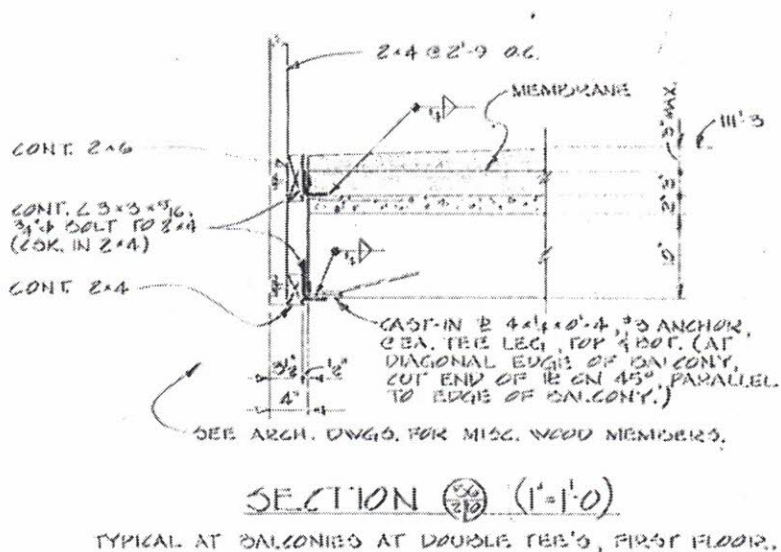 2x4 @ 2'-9 O.C.
MEMBRANE
111'-3
CONT. 2x6
CONT. L 3x3x5/16,
3/4"φ BOLT TO 2x4
(CSK. IN 2x4)
CONT. 2x4
CAST-IN ℄ 4x¼x0'-4, #3 ANCHOR,
@ EA. TEE LEG, TOP & BOT. (AT
DIAGONAL EDGE OF BALCONY,
CUT END OF ON 45°, PARALLEL
TO EDGE OF BALCONY.)
3½" ½"
4"
10"
SEE ARCH. DWGS. FOR MISC. WOOD MEMBERS.
SECTION (1"=1'-0)
TYPICAL AT BALCONIES AT DOUBLE TEE'S, FIRST FLOOR.